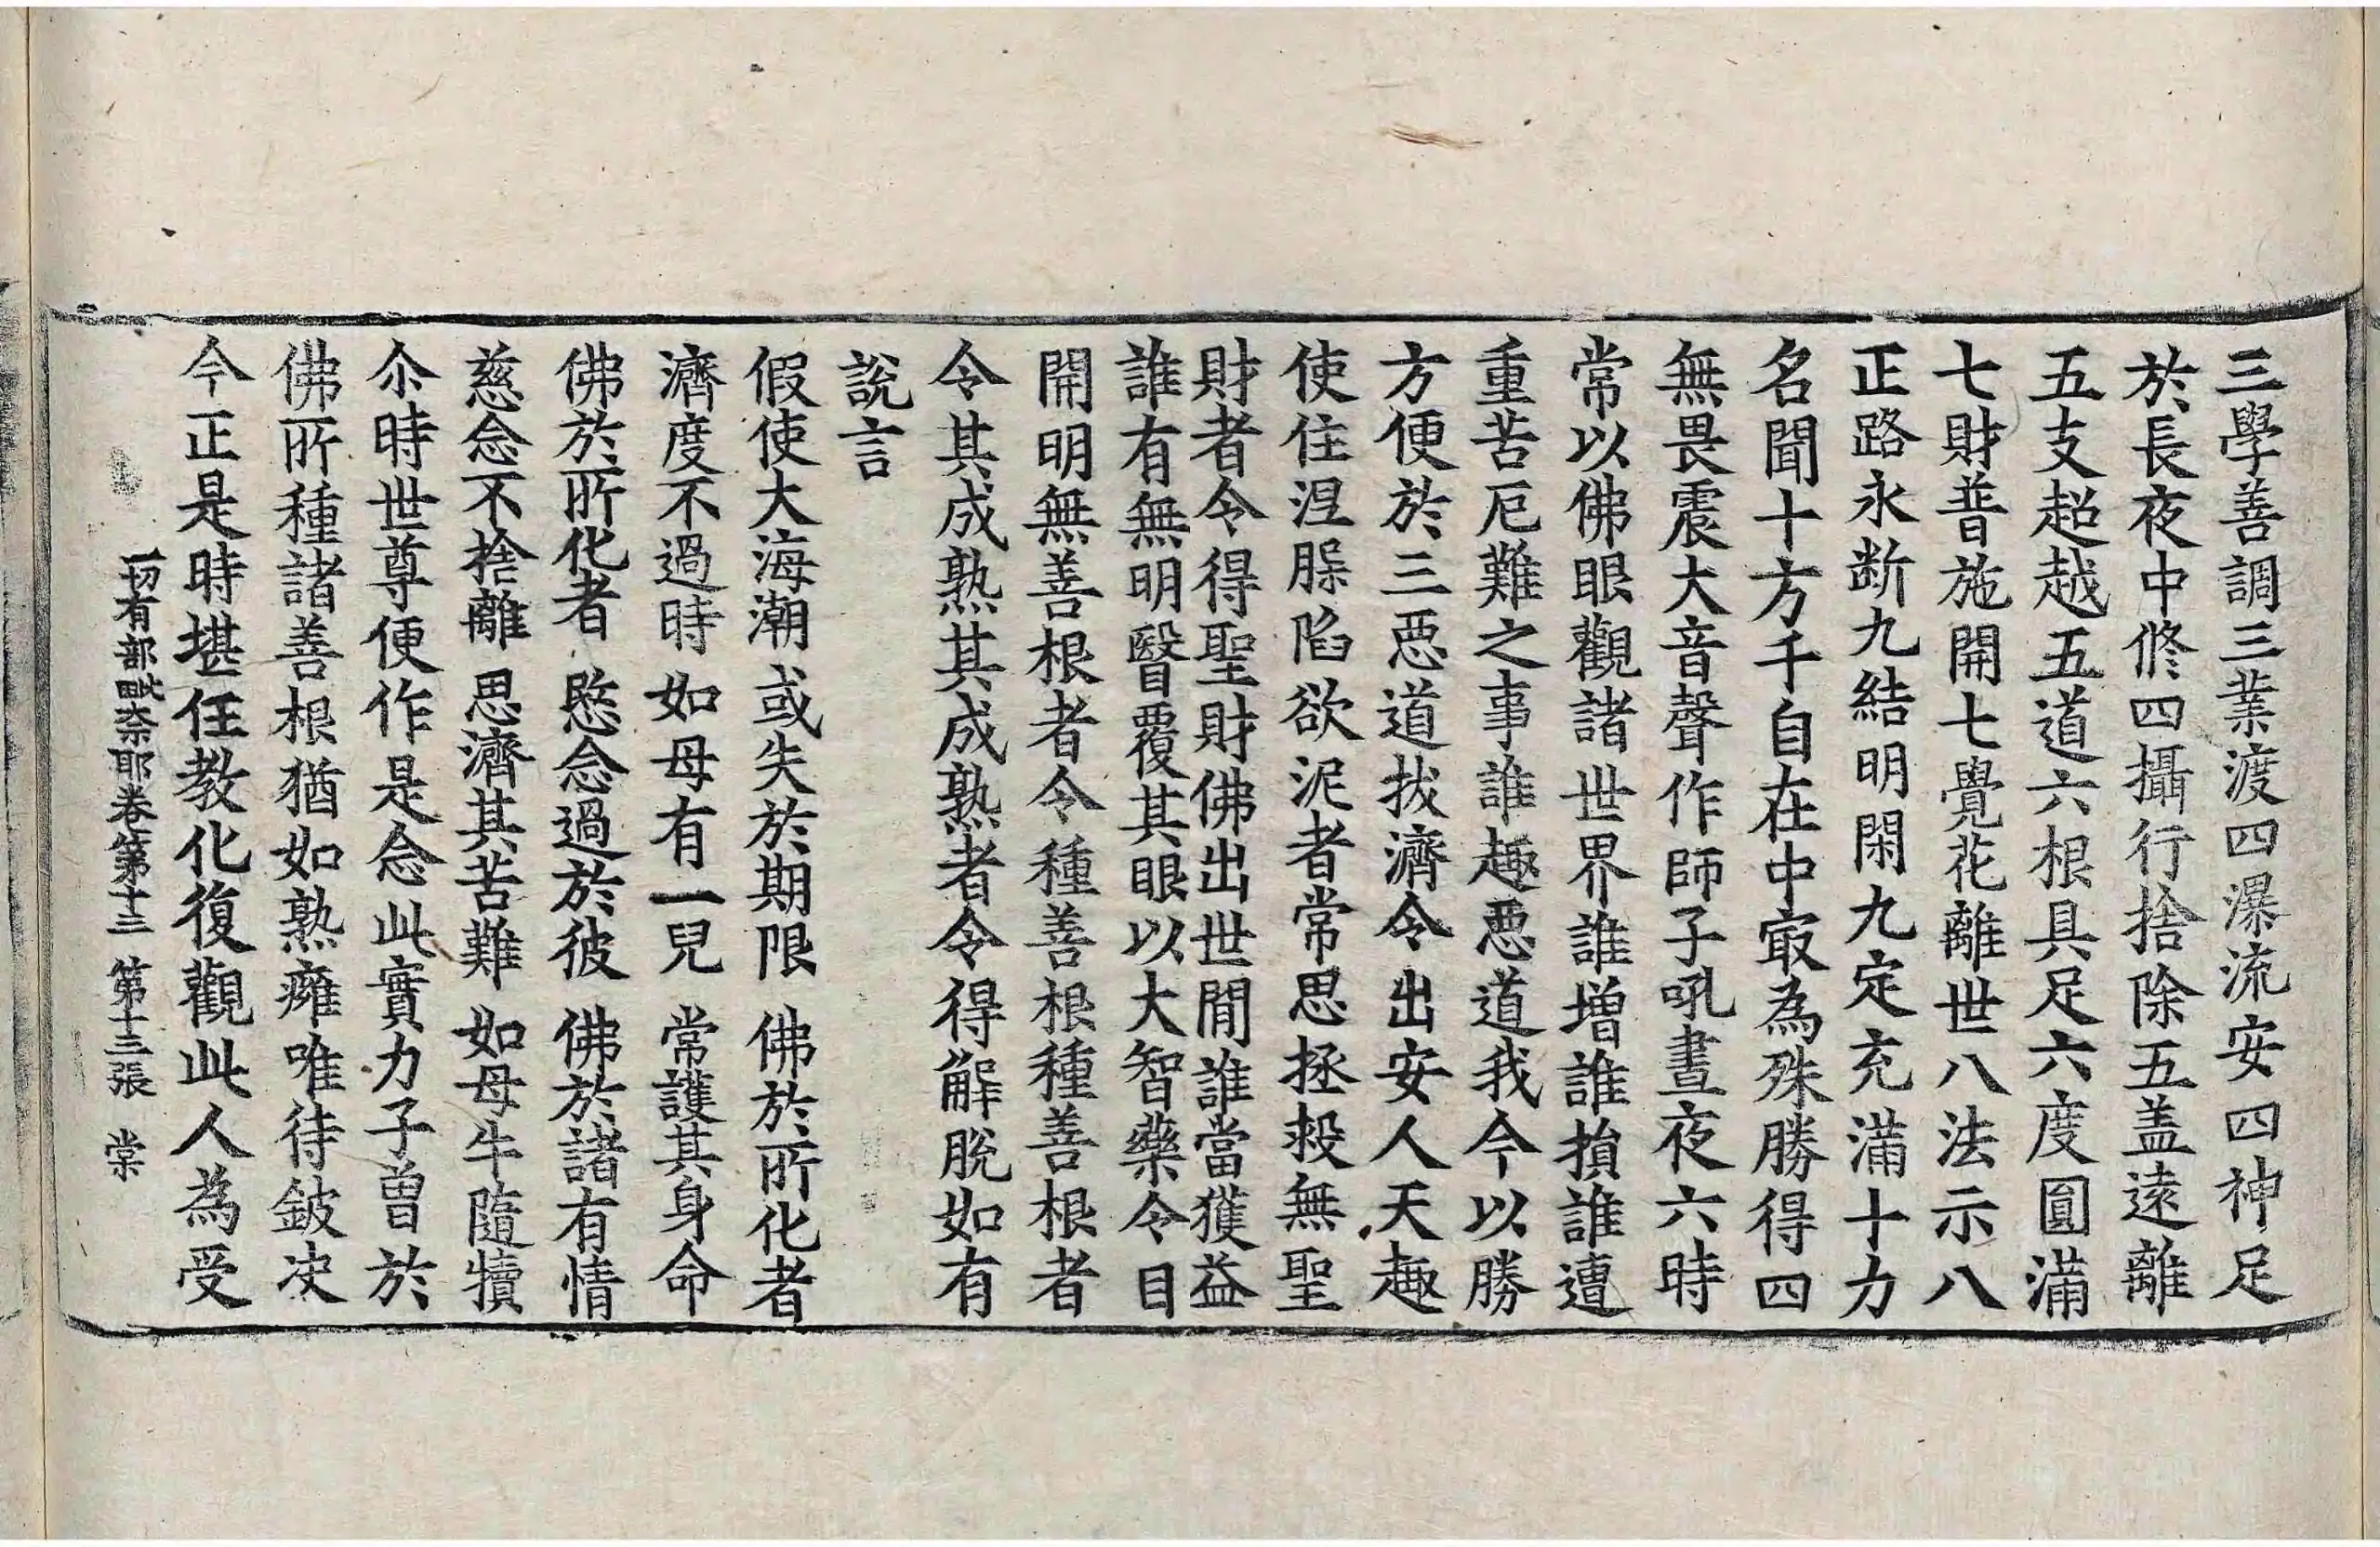 三學善調三業渡四瀑流安四神足
於長夜中修四攝行捨除五盖遠離
五支超越五道六根具足六度圓滿
七財普施開七覺花離世八法示八
正路永断九結明閑九定充滿十力
名聞十方千自在中㝡為殊勝得四
無畏震大音聲作師子吼晝夜六時
常以佛眼觀諸世界誰增誰損誰遭
重苦厄難之事誰趣惡道我今以勝
方便於三惡道拔濟令出安人天趣
使住涅槃陷欲泥者常思拯救無聖
財者令得聖財佛出世間誰當獲益
誰有無明瞖覆其眼以大智藥令目
開明無善根者令種善根種善根者
令其成熟其成熟者令得解脫如有
說言
假使大海潮 或失於期限 佛於所化者
濟度不過時 如母有一兒 常護其身命
佛於所化者 愍念過於彼 佛於諸有情
慈念不捨離 思濟其苦難 如母牛隨犢
尒時世尊便作是念此實力子曾於
佛所種諸善根猶如熟癰唯待鈹决
今正是時堪任教化復觀此人為受
一切有部毗柰耶卷第十三 第十三張 棠